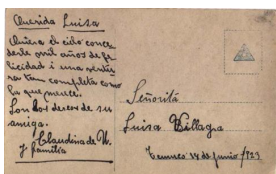 Querida Luisa
Quiera el cielo conce
derle mil años de fe
licidad i una
tan completa como
la que merece.
Son los deseos de su
amiga.
Claudina de
y familia
Señorita
Luisa Villagra
Temuco 14 de Junio/923